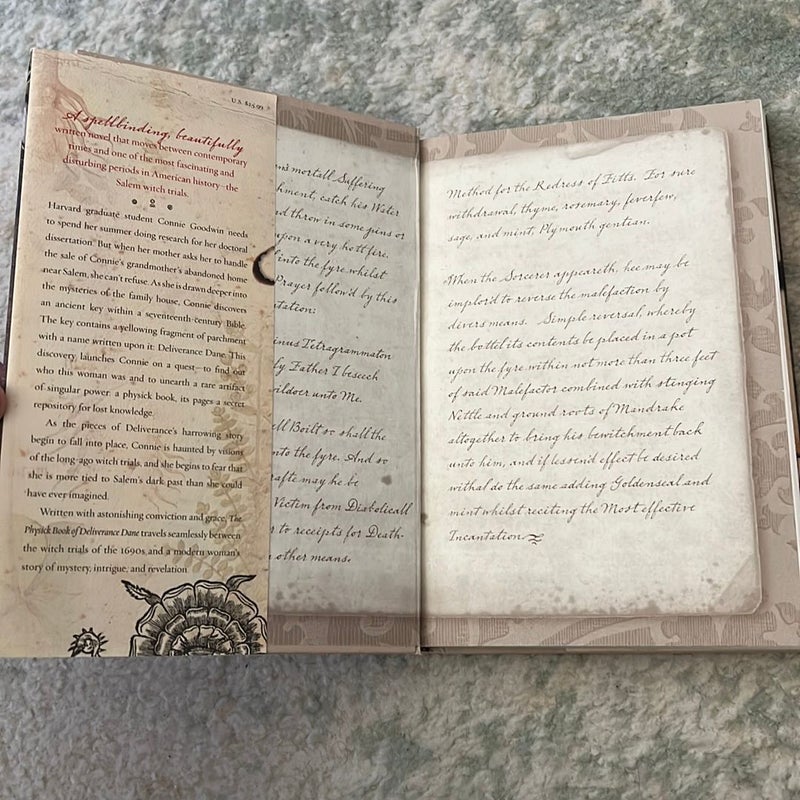 U.S. $25.99
A spellbinding, beautifully
written novel that moves between contemporary
times and one of the most fascinating and
disturbing periods in American history—the
Salem witch trials.
Harvard graduate student Connie Goodwin needs
to spend her summer doing research for her doctoral
dissertation. But when her mother asks her to handle
the sale of Connie's grandmother's abandoned home
near Salem, she can't refuse. As she is drawn deeper into
the mysteries of the family house, Connie discovers
an ancient key within a seventeenth-century Bible.
The key contains a yellowing fragment of parchment
with a name written upon it: Deliverance Dane. This
discovery launches Connie on a quest—to find out
who this woman was and to unearth a rare artifact
of singular power: a physick book, its pages a secret
repository for lost knowledge.
As the pieces of Deliverance's harrowing story
begin to fall into place, Connie is haunted by visions
of the long-ago witch trials, and she begins to fear that
she is more tied to Salem's dark past than she could
have ever imagined.
Written with astonishing conviction and grace, The
Physick Book of Deliverance Dane travels seamlessly between
the witch trials of the 1690s and a modern woman's
story of mystery, intrigue, and revelation.
mortall Suffering
catch his Water
throw in some pins or
upon a very hott fire.
into the fyre whilst
Prayer follow'd by this
Tetragrammaton
Father I beseech
unto Me.
Boilt so shall the
the fyre. And so
may he be
Victim from Diabolicall
to receipts for Death-
other means.
Method for the Redress of Fitts. For sure
withdrawal, thyme, rosemary, feverfew,
sage, and mint, Plymouth gentian.
When the Sorcerer appeareth, hee may be
implor'd to reverse the malefaction by
divers means. Simple reversal, whereby
the bottel its contents be placed in a pot
upon the fyre within not more than three feet
of said Malefactor combined with stinging
Nettle and ground roots of Mandrake
altogether to bring his bewitchment back
unto him, and if lessend effect be desired
withal do the same adding Goldenseal and
mint whilst reciting the Most effective
Incantation